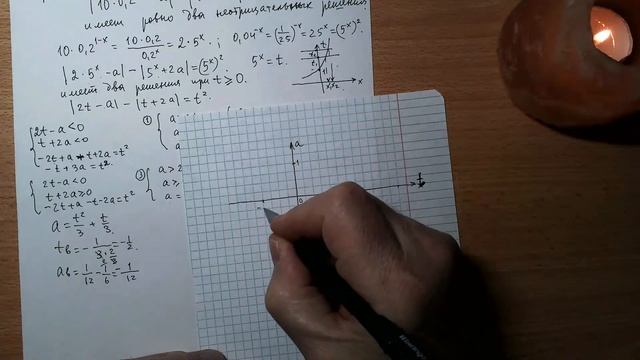 имеет ровно два неотрицательных решения
10·0,2^{1-x} = \frac{10·0,2}{0,2^x} = 2·5^x. ; 0,04^{-x} = (\frac{1}{25})^{-x} = 25^x = (5^x)^2.
|2·5^x - a| - |5^x + 2a| = (5^x)^2. 5^x = t.
имеет два решения при t ⩾ 0.
|2t - a| - |t + 2a| = t^2.
{ 2t - a < 0
t + 2a < 0
-2t + a + t + 2a = t^2
-t + 3a = t^2.
{ 2t - a < 0
t + 2a ⩾ 0
-2t + a - t - 2a = t^2
a = \frac{t^2}{3} + \frac{t}{3}.
t_в = -\frac{1}{3·\frac{2}{3}} = -\frac{1}{2}.
a_в = \frac{1}{12} - \frac{1}{6} = -\frac{1}{12}
① { a
a
③ { a > 2
a ⩾
a =
t
1
x₁ x₂ x
a
1
0
t